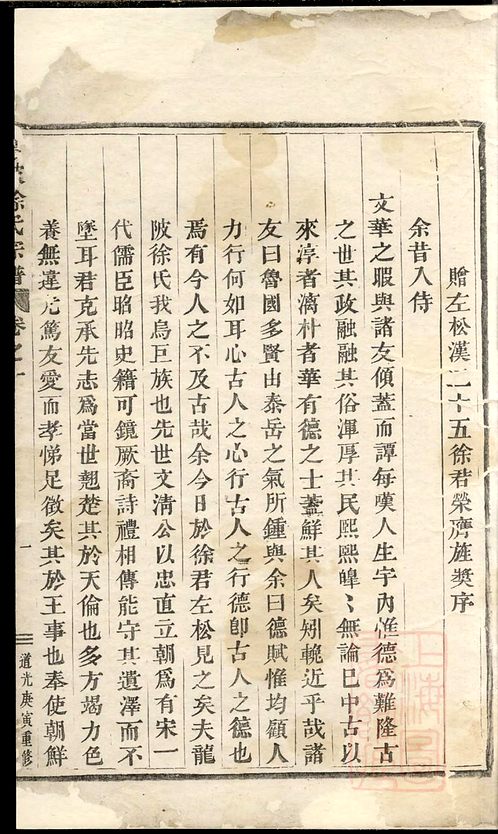 贈左松漢二十五徐君榮濟旌奬序
余昔入侍
文華之暇與諸友傾蓋而譚每嘆人生宇內惟德爲難隆古
之世其政融融其俗渾厚其民熙熙皥〻無論已中古以
來淳者漓朴者華有德之士蓋鮮其人矣矧輓近乎哉諸
友曰魯國多賢由泰岳之氣所鍾與余曰德賦惟均顧人
力行何如耳心古人之心行古人之行德卽古人之德也
焉有今人之不及古哉余今日於徐君左松見之矣夫龍
陂徐氏我烏巨族也先世文清公以忠直立朝爲有宋一
代儒臣昭昭史籍可鏡厥裔詩禮相傳能守其遺澤而不
墜耳君克承先志爲當世翹楚其於天倫也多方竭力色
養無違尤篤友愛而孝悌足徵矣其於王事也奉使朝鮮
徐氏宗譜 卷之一
一
道光庚寅重修
上海圖書館藏